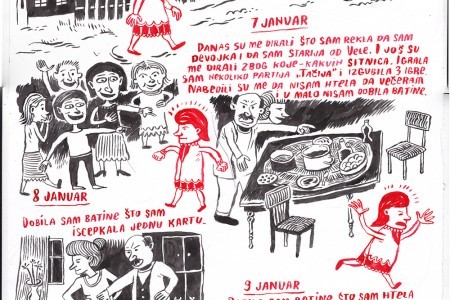 7 JANUAR
DANAS SU ME DIRALI ŠTO SAM REKLA DA SAM
DEVOJKA I DA SAM STARIJA OD VELE. I JOŠ SU
ME DIRALI ZBOG KOJE-KAKVIH SITNICA. IGRALA
SAM NEKOLIKO PARTIJA "TAČIVA" I IZGUBILA 3 IGRE.
NABEDILI SU ME DA NISAM HTELA DA VEČERAM
I U MALO NISAM DOBILA BATINE.
8 JANUAR
DOBILA SAM BATINE ŠTO SAM
ISCEPKALA JEDNU KARTU.
9 JANUAR
SAM BATINE ŠTO SAM HTELA